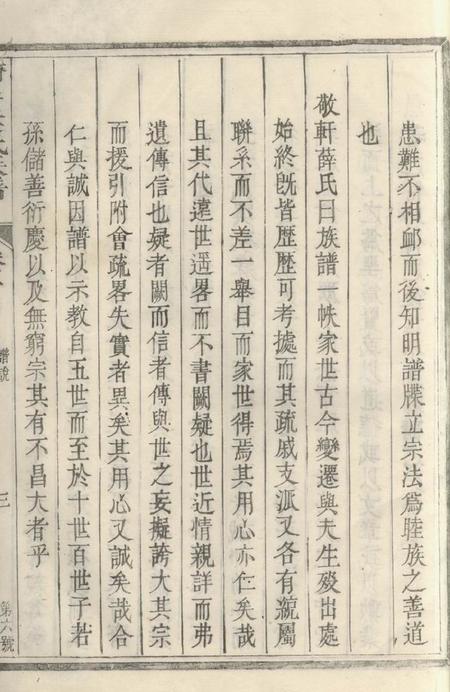 患難不相卹而後知明譜牒立宗法爲睦族之善道
也
敬軒薛氏曰族譜一帙家世古今變遷與夫生歿出處
始終既皆歷歷可考據而其疏戚支派又各有統屬
聯系而不差一舉目而家世得焉其用心亦仁矣哉
且其代遠世遥畧而不書闕疑也世近情親詳而弗
遺傳信也疑者闕而信者傳與世之妄擬誇大其宗
而援引附會疏畧失實者異矣其用心又誠矣哉合
仁與誠因譜以示教自五世而至於十世百世子若
孫儲善衍慶以及無窮宗其有不昌大者乎
譜說
三
第六號